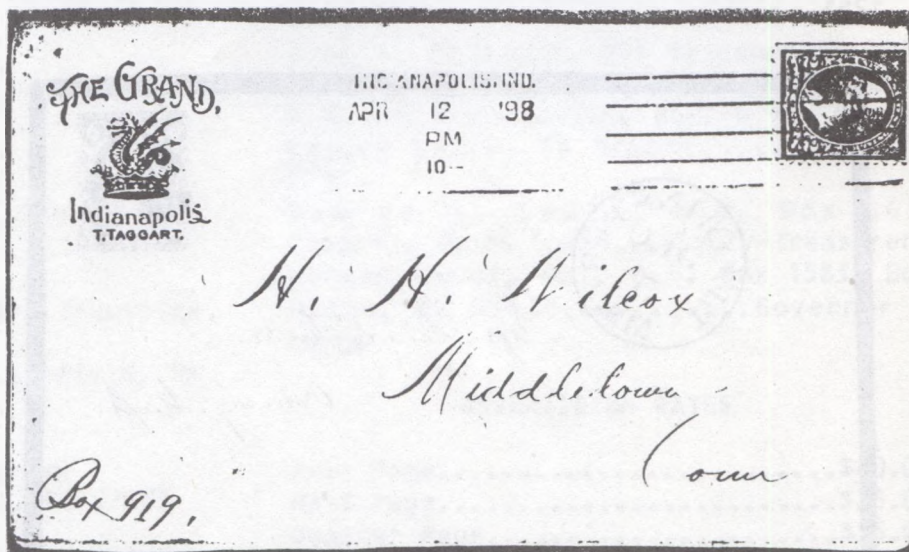 THE GRAND,
Indianapolis
T. TAGGART.
INDIANAPOLIS IND.
APR 12 '98
PM
10--
H. H. Wilcox
Middletown
Conn
Box 919,